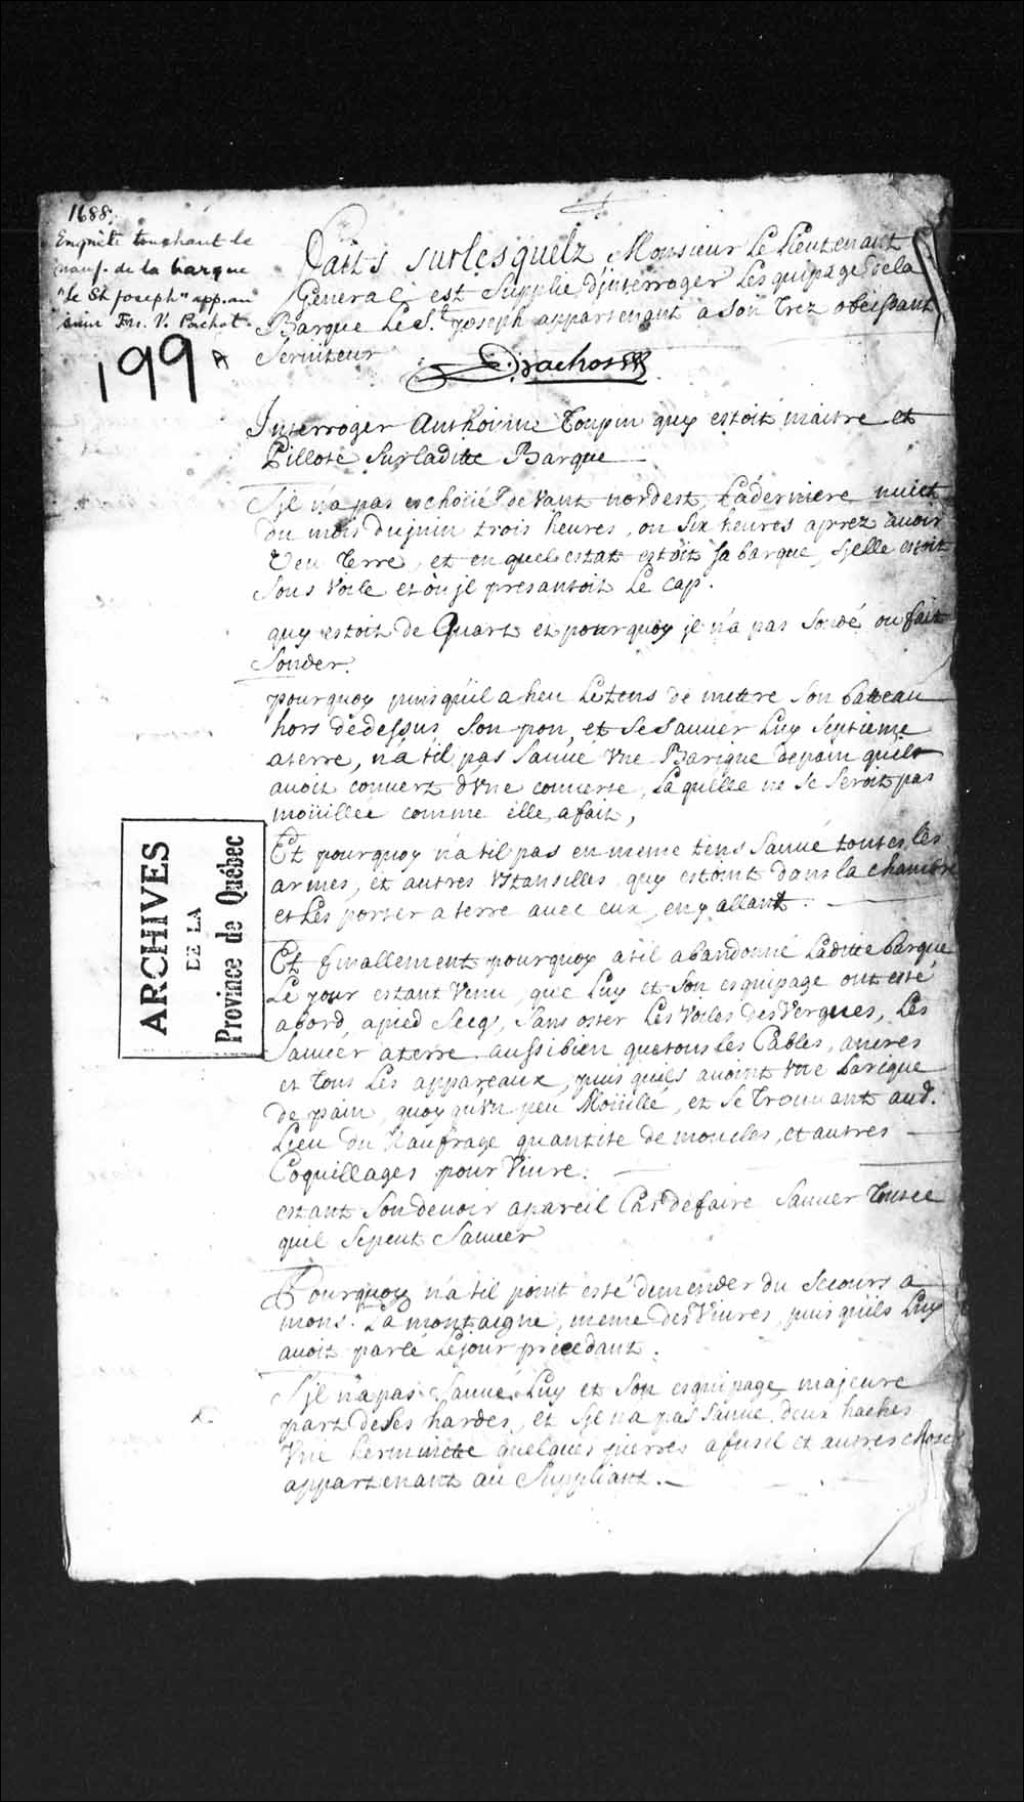 1688.
Enquête touchant le
nauf. de la barque
"le St Joseph" app. au
sieur Frs. V. Pachot.
199 A
Faits surlesquelz Monsieur Le Lieutenant
General est Supplié d'jnterroger Lesquipage de la
Barque Le St. Joseph appartenant a son trez obeissant
Serviteur
Pachot
Jnterroger Anthoine Toupin quy estoit maitre et
Pillote Surladitte Barque
Sjl n'a pas eschoüé devant nordest, La derniere nuict
du mois dujuin trois heures, ou six heures aprez avoir
Veu Terre, et en quel estat estoit sa barque, sj elle estoit
Sous Voile et où jl presantoit Le cap.
quy estoit de Quart et pourquoy jl n'a pas Sondé ou fait
Sonder.
pourquoy puisqu'il a heu Letens de mettre Son batteau
hors dedessus Son pon, et Se sauver Luy Septieme
aterre, n'a til pas Sauvé Vne Barique de pain quilt
avoit couvert d'Vne couverte, Laquelle ne Se Seroit pas
moüillée comme elle a fait,
Et pourquoy n'a til pas en meme tens Sauvé toutes les
armes, et autres Vstansilles quy estoint dans la chambre
et Les porter a terre avec eux en y allant.
Et finallement pourquoy atil abandonné Laditte barque
Le jour estant Venu, que Luy et Son esquipage ont esté
abord, apied Secq, Sans oster Les Voiles des Vergues, Les
Sauver aterre aussibien quetous les Cables, ancres
et tous Les appareaux, puis quils avoint Vne barique
de pain, quoy qu'vn peu Moüillé, et Se Trouvant aud.
Lieu du Naufrage quantité de moucles, et autres
Coquillages pour Vivre.
estant Son devoir apareil Cas de faire Sauver Tousce
quil Sepeut Sauver
Pourquoy n'a til point esté demender du Secours a
mons. La montaigne, meme des Vivres, puis quils Luy
avoit parlé Lejour précedant.
Sjl n'apas Sauvé Luy et Son esquipage majeure
part deses hardes, et Sjl na pas Sauvé deux haches
Vne herminette quelques pierres afusil et autres choses
appartenant au Suppliant.
ARCHIVES
DE LA
Province de Québec